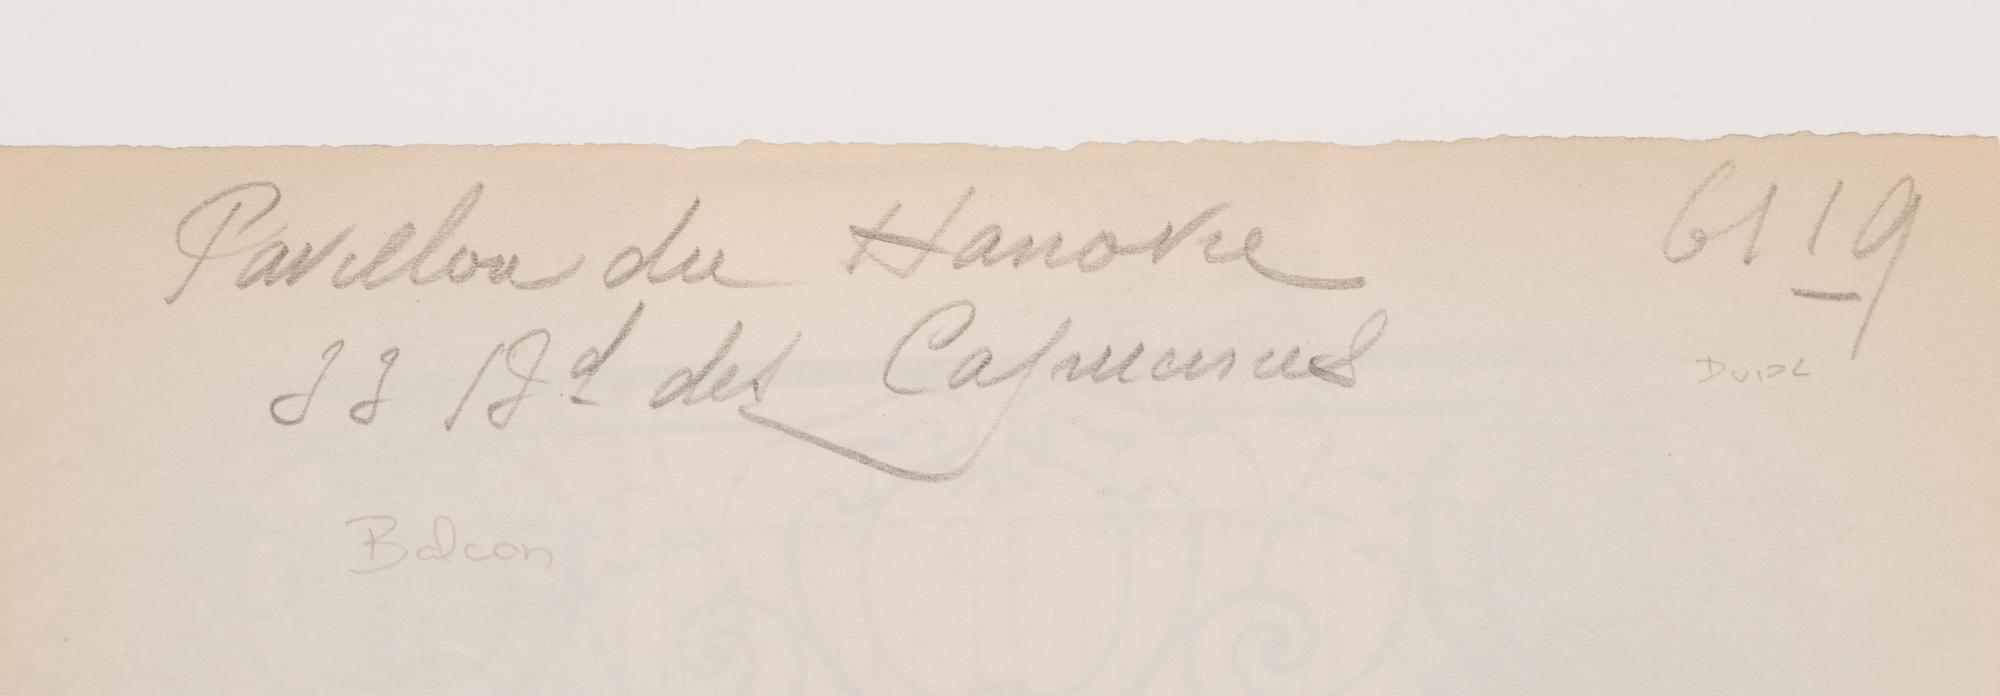 Pavillon du Hanovre 6119
33 Bd des Capucines
Dupl
Balcon